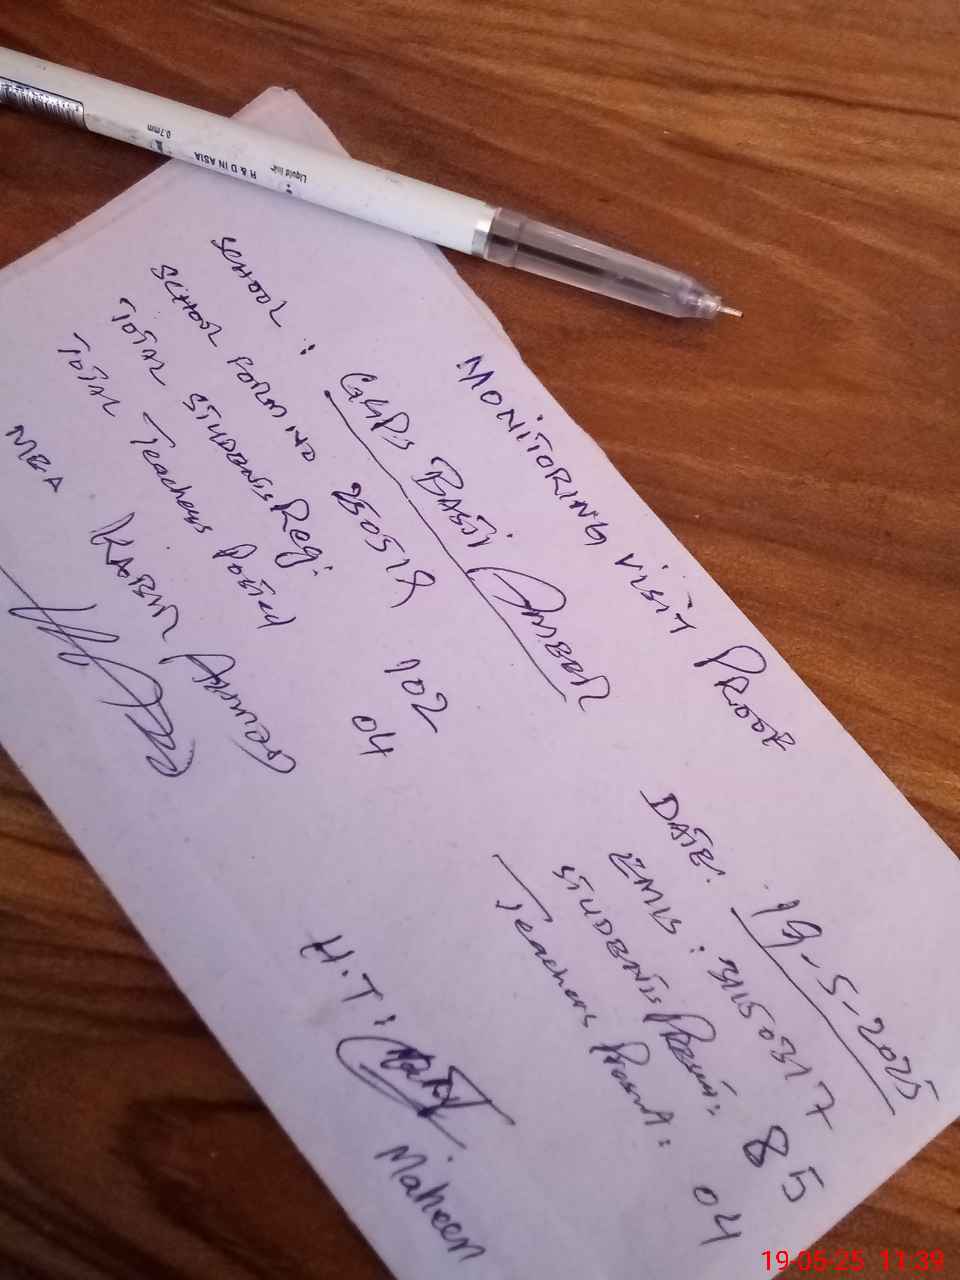 MONITORING VISIT PROOF
SCHOOL : GGPS BASTI AMBER
DATE: 19-5-2025
SCHOOL FORM NO 250519
EMIS : 31150317
TOTAL STUDENTS Reg: 102
STUDENTS PRESENT: 85
TOTAL Teachers Posted 04
Teachers Present: 04
MEA KABIR AHMED
H.T:
Maheen
0.7mm
Liquid ink
R & D IN ASIA
19-05-25 11:39